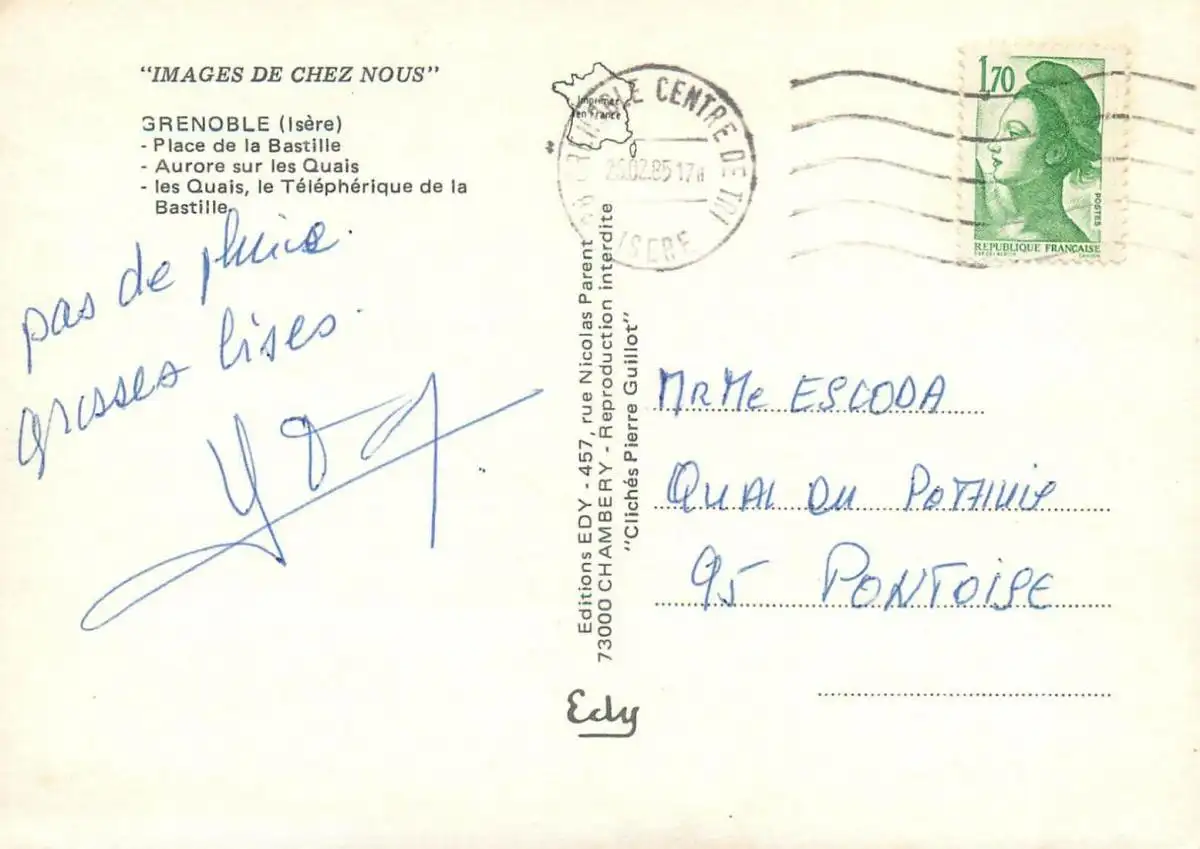 "IMAGES DE CHEZ NOUS"
GRENOBLE (Isère)
- Place de la Bastille
- Aurore sur les Quais
- les Quais, le Téléphérique de la
Bastille.
pas de pluie.
grosses bises.
Imprimé
en France
GRENOBLE CENTRE DE TRI
26.02.85 17H
ISERE
1,70
POSTES
REPUBLIQUE FRANÇAISE
Editions EDY - 457, rue Nicolas Parent
73000 CHAMBERY - Reproduction interdite
"Clichés Pierre Guillot"
Edy
MR Me ESCODA
QUAI DU POTHUIS
95 PONTOISE